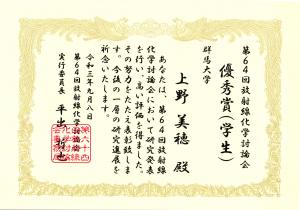 第64回放射線化学討論会
優秀賞(学生)
群馬大学
上野 美穂 殿
あなたは、第64回放射線
化学討論会において研究発表
を行い、高い評価を得ました。
その努力をたたえ表彰致しま
す。今後の一層の研究進展を
祈念いたします。
令和三年九月八日
第64回放射線化学討論会
実行委員長 平出 哲也